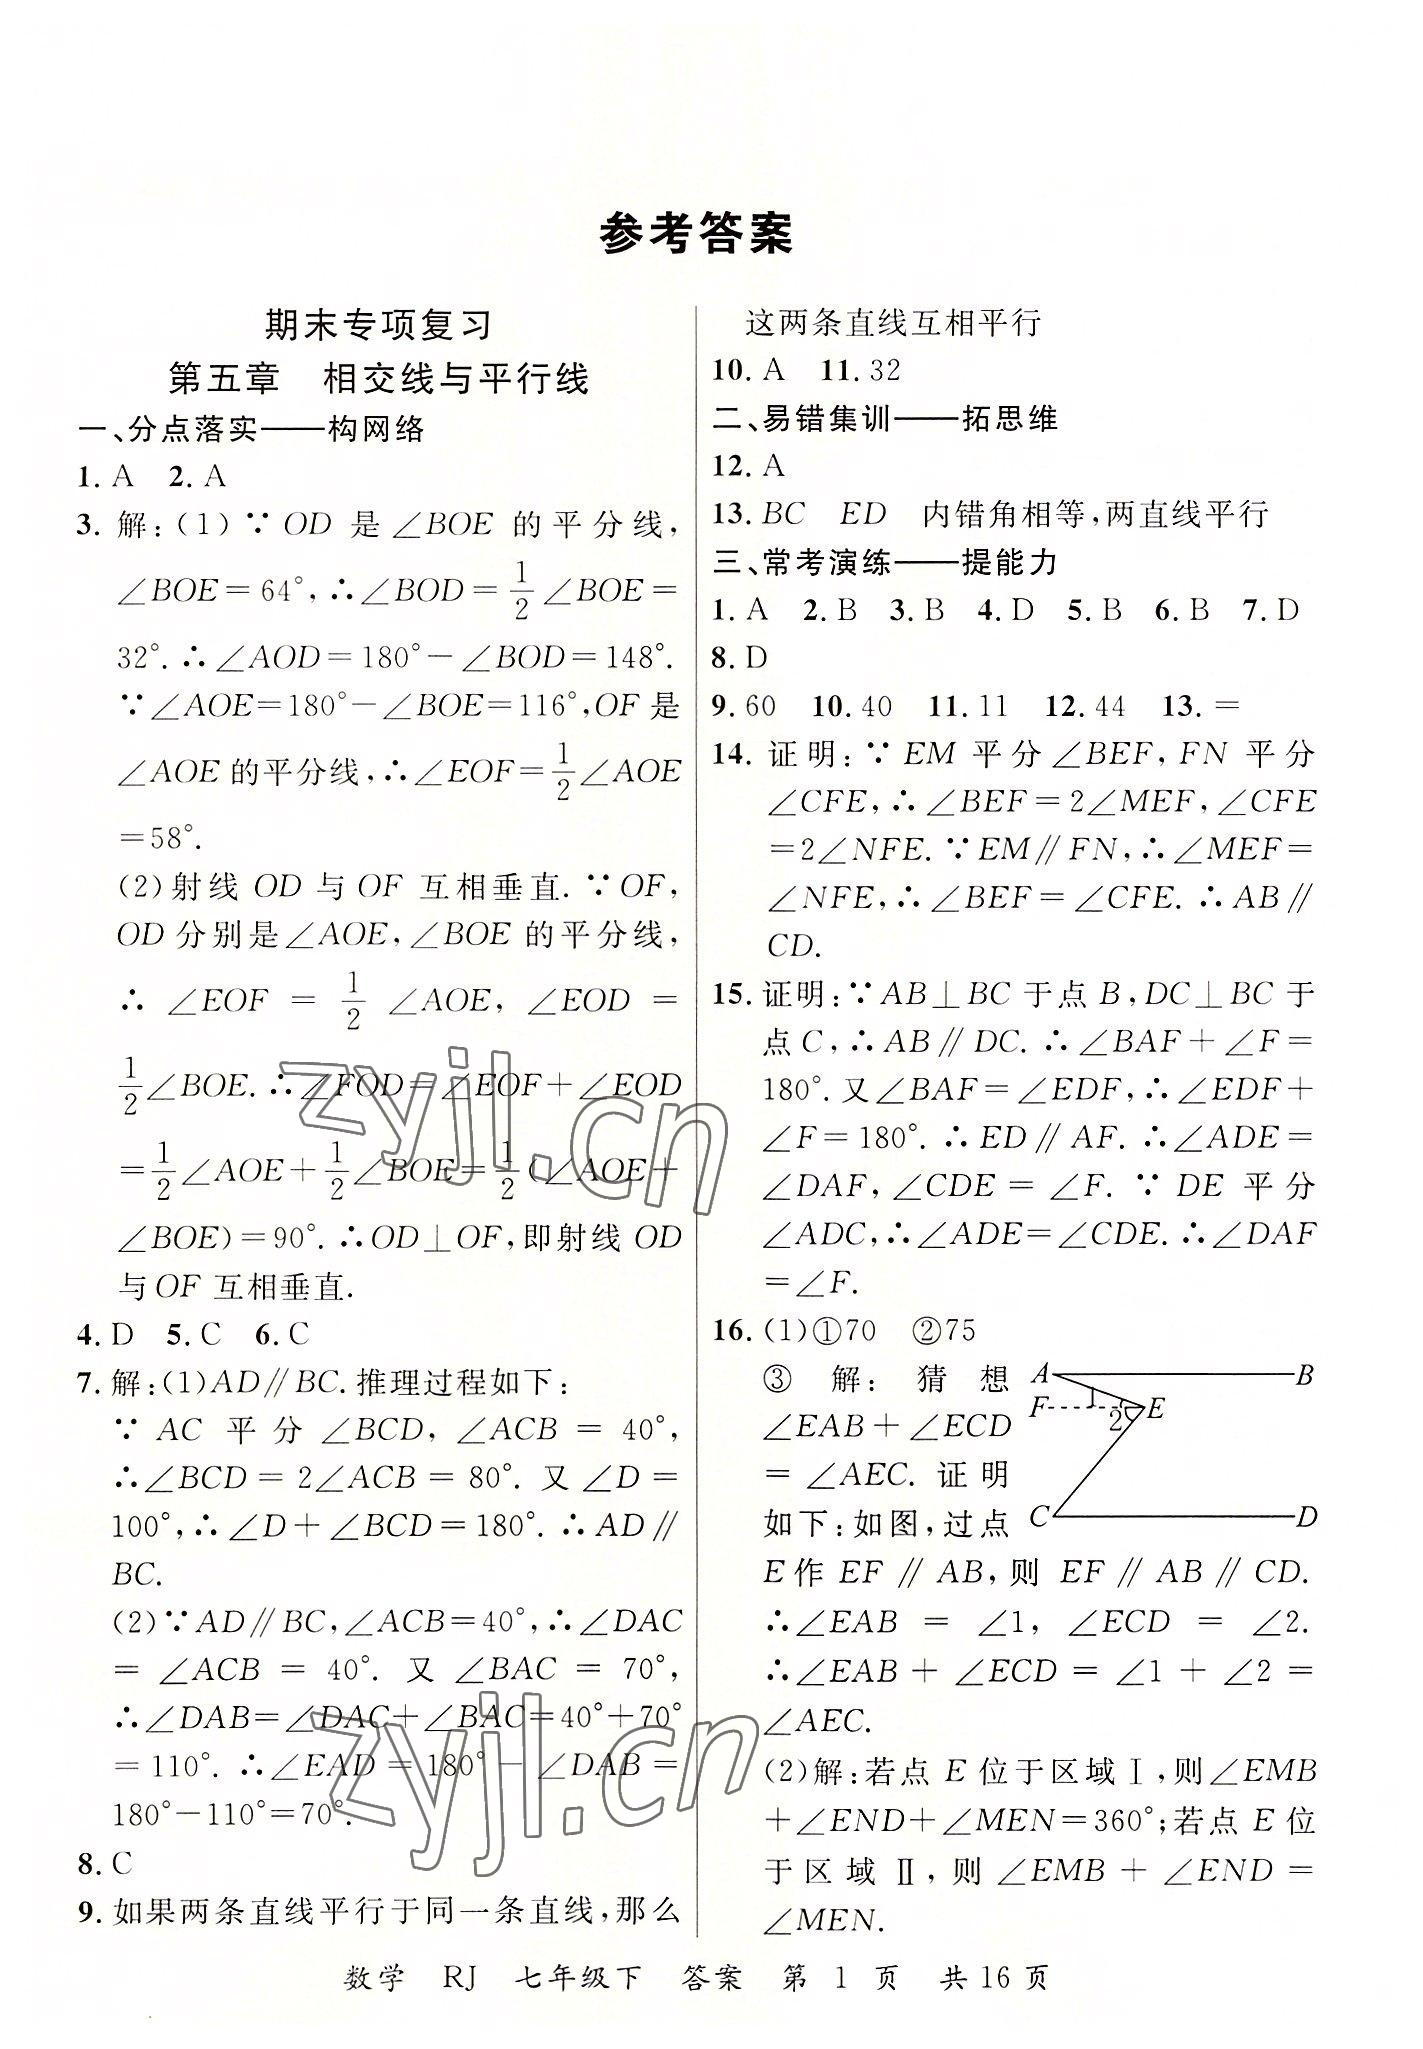 参考答案
期末专项复习
第五章　相交线与平行线
一、分点落实——构网络
1. A　2. A
3. 解:(1)∵OD 是∠BOE 的平分线,
∠BOE=64°,∴∠BOD=1/2∠BOE=
32°.∴∠AOD=180°-∠BOD=148°.
∵∠AOE=180°-∠BOE=116°,OF是
∠AOE的平分线,∴∠EOF=1/2∠AOE
=58°.
(2)射线 OD 与 OF 互相垂直.∵OF,
OD分别是∠AOE,∠BOE的平分线,
∴ ∠EOF = 1/2 ∠AOE, ∠EOD =
1/2∠BOE.∴∠FOD=∠EOF+∠EOD
=1/2∠AOE+1/2∠BOE=1/2(∠AOE+
∠BOE)=90°.∴OD⊥OF,即射线 OD
与OF 互相垂直.
4. D　5. C　6. C
7. 解:(1)AD∥BC.推理过程如下:
∵ AC 平分∠BCD, ∠ACB = 40°,
∴∠BCD = 2∠ACB = 80°. 又∠D=
100°,∴∠D+∠BCD=180°.∴AD∥
BC.
(2)∵AD∥BC,∠ACB=40°,∴∠DAC
= ∠ACB = 40°. 又 ∠BAC = 70°,
∴∠DAB=∠DAC+∠BAC=40°+70°
=110°.∴∠EAD=180°-∠DAB=
180°-110°=70°.
8. C
9. 如果两条直线平行于同一条直线,那么
这两条直线互相平行
10. A　11. 32
二、易错集训——拓思维
12. A
13. BC　ED　内错角相等,两直线平行
三、常考演练——提能力
1. A　2. B　3. B　4. D　5. B　6. B　7. D
8. D
9. 60　10. 40　11. 11　12. 44　13. =
14. 证明:∵EM 平分∠BEF,FN 平分
∠CFE,∴∠BEF=2∠MEF,∠CFE
=2∠NFE.∵EM∥FN,∴∠MEF=
∠NFE,∴∠BEF=∠CFE.∴AB∥
CD.
15. 证明:∵AB⊥BC于点B,DC⊥BC于
点C,∴AB∥DC.∴∠BAF+∠F=
180°.又∠BAF=∠EDF,∴∠EDF+
∠F=180°.∴ED∥AF.∴∠ADE=
∠DAF,∠CDE = ∠F. ∵ DE 平分
∠ADC,∴∠ADE=∠CDE.∴∠DAF
=∠F.
16. (1)①70　②75
③ 解: 猜想
∠EAB+∠ECD
= ∠AEC. 证明
如下:如图,过点
A B
F 1 2 E
C D
E作 EF∥AB,则 EF∥AB∥CD.
∴∠EAB = ∠1, ∠ECD = ∠2.
∴∠EAB+∠ECD=∠1+∠2=
∠AEC.
(2)解:若点E位于区域Ⅰ,则∠EMB
+∠END+∠MEN=360°;若点E位
于区域Ⅱ,则∠EMB+∠END=
∠MEN.
zyjl.cn
zyjl.cn
数学　RJ　七年级下　答案　第 1 页　共16页